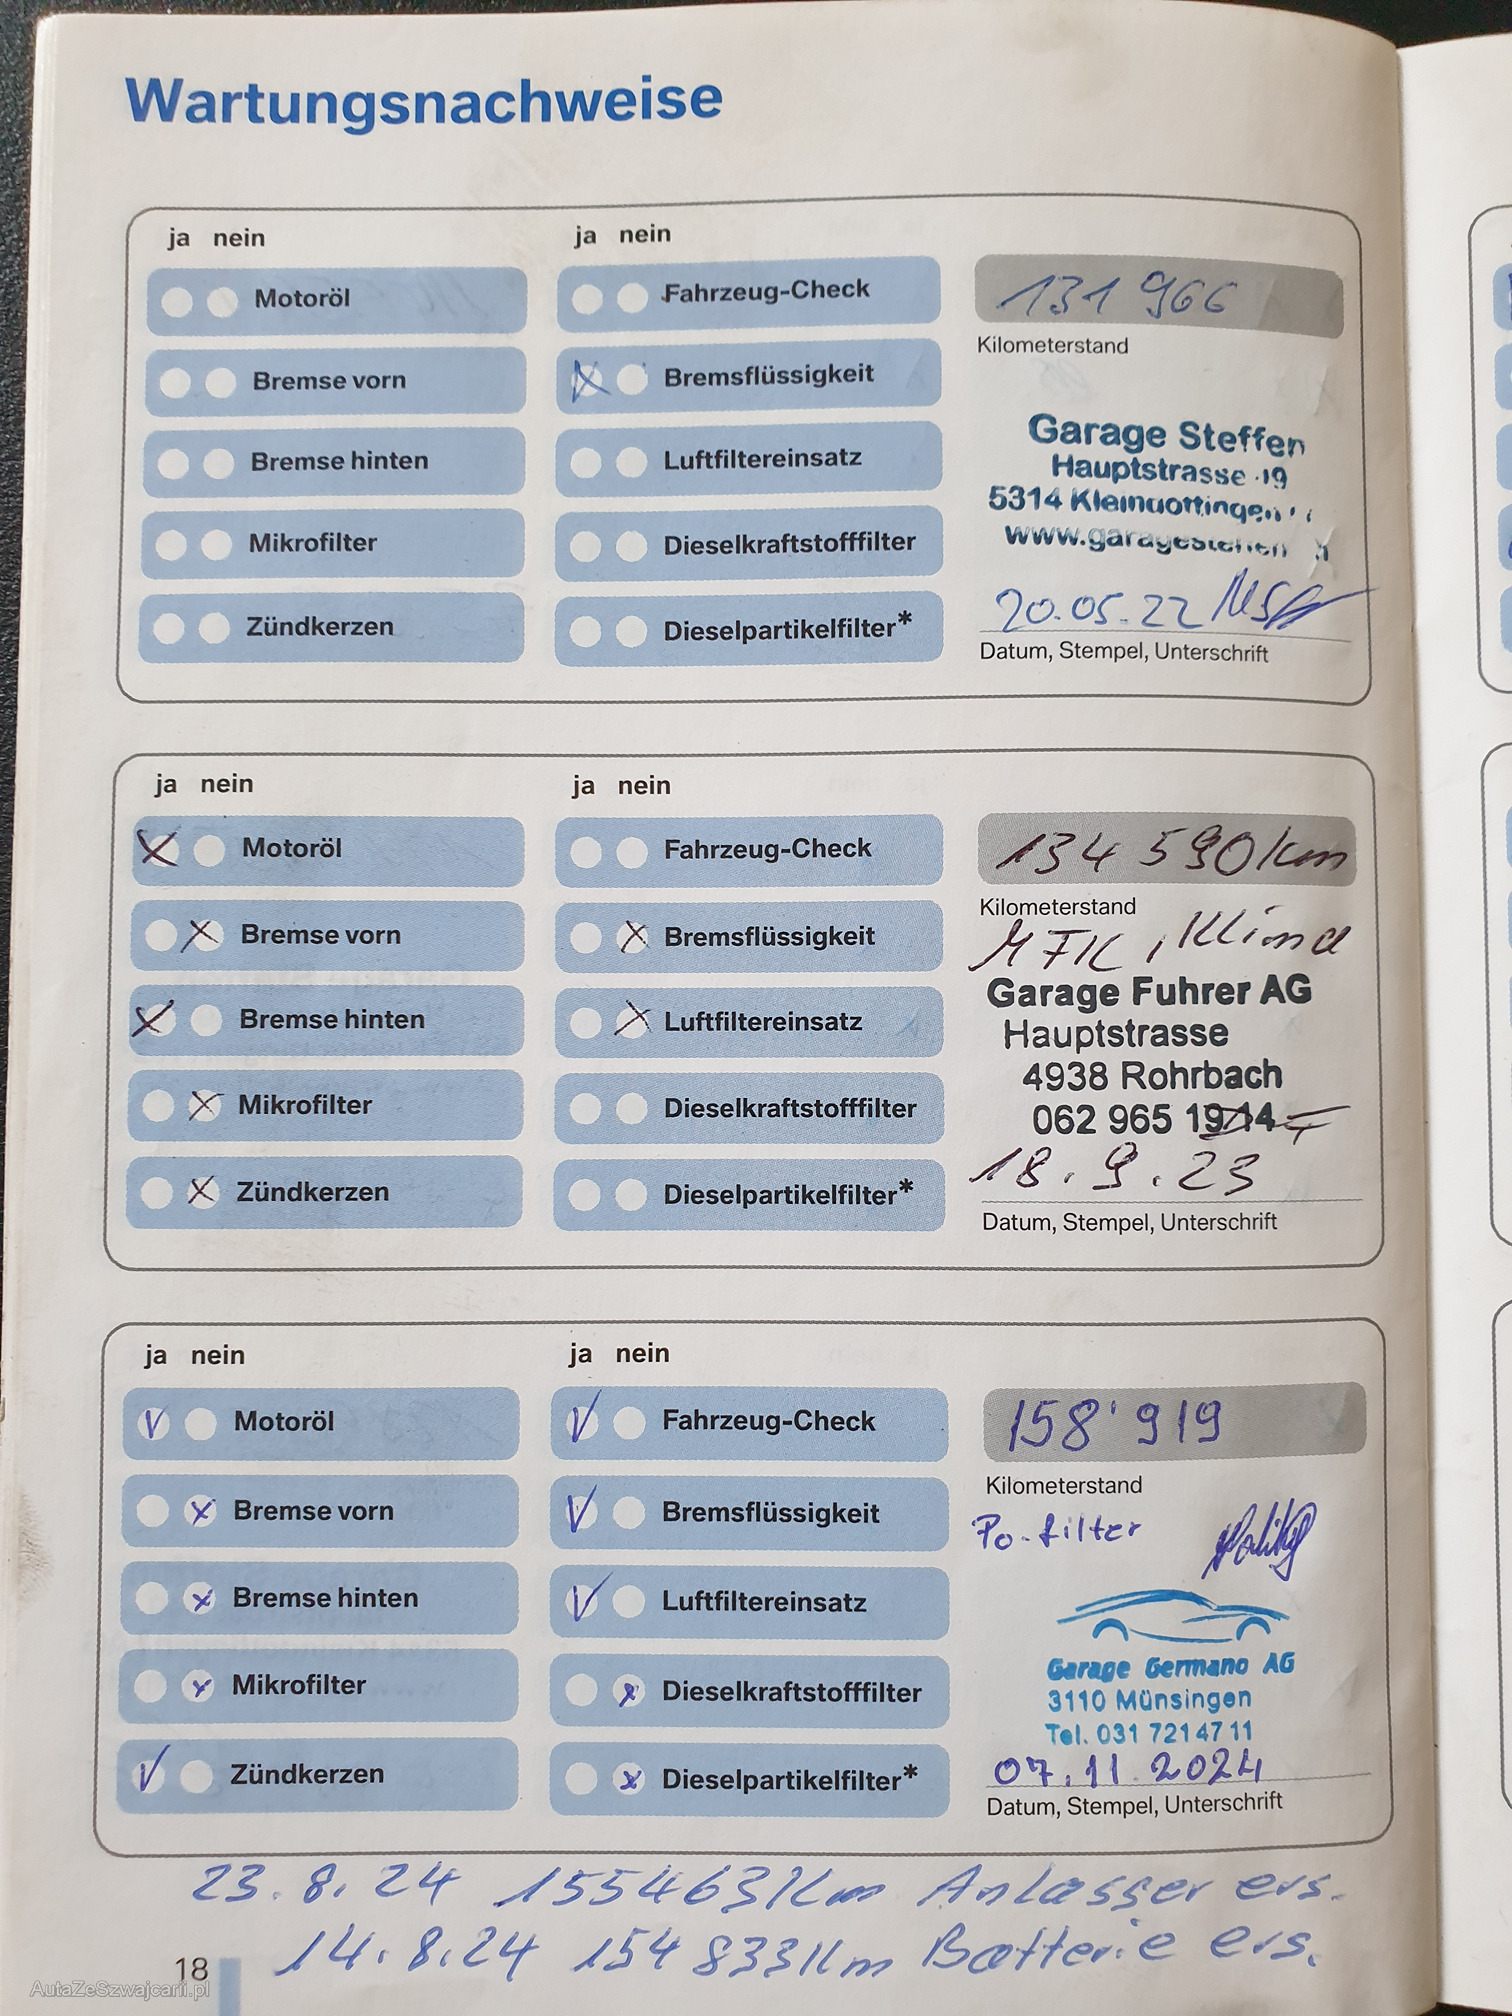 Wartungsnachweise
ja nein
Motoröl
Bremse vorn
Bremse hinten
Mikrofilter
Zündkerzen
ja nein
Fahrzeug-Check
Bremsflüssigkeit
Luftfiltereinsatz
Dieselkraftstofffilter
Dieselpartikelfilter*
131 966
Kilometerstand
Garage Steffen
Hauptstrasse 19
5314 Kleindöttingen
20.05.22
Datum, Stempel, Unterschrift
ja nein
Motoröl
Bremse vorn
Bremse hinten
Mikrofilter
Zündkerzen
ja nein
Fahrzeug-Check
Bremsflüssigkeit
Luftfiltereinsatz
Dieselkraftstofffilter
Dieselpartikelfilter*
134 590 km
Kilometerstand
MFK, Klima
Garage Fuhrer AG
Hauptstrasse
4938 Rohrbach
062 965 19 14
18.9.23
Datum, Stempel, Unterschrift
ja nein
Motoröl
Bremse vorn
Bremse hinten
Mikrofilter
Zündkerzen
ja nein
Fahrzeug-Check
Bremsflüssigkeit
Luftfiltereinsatz
Dieselkraftstofffilter
Dieselpartikelfilter*
158'919
Kilometerstand
Po-filter
Garage Germano AG
3110 Münsingen
Tel. 031 721 47 11
07.11.2024
Datum, Stempel, Unterschrift
23.8.24 155463 Km Anlasser ers.
14.8.24 154833 Km Batterie ers.
18
AutaZeSzwajcarii.pl